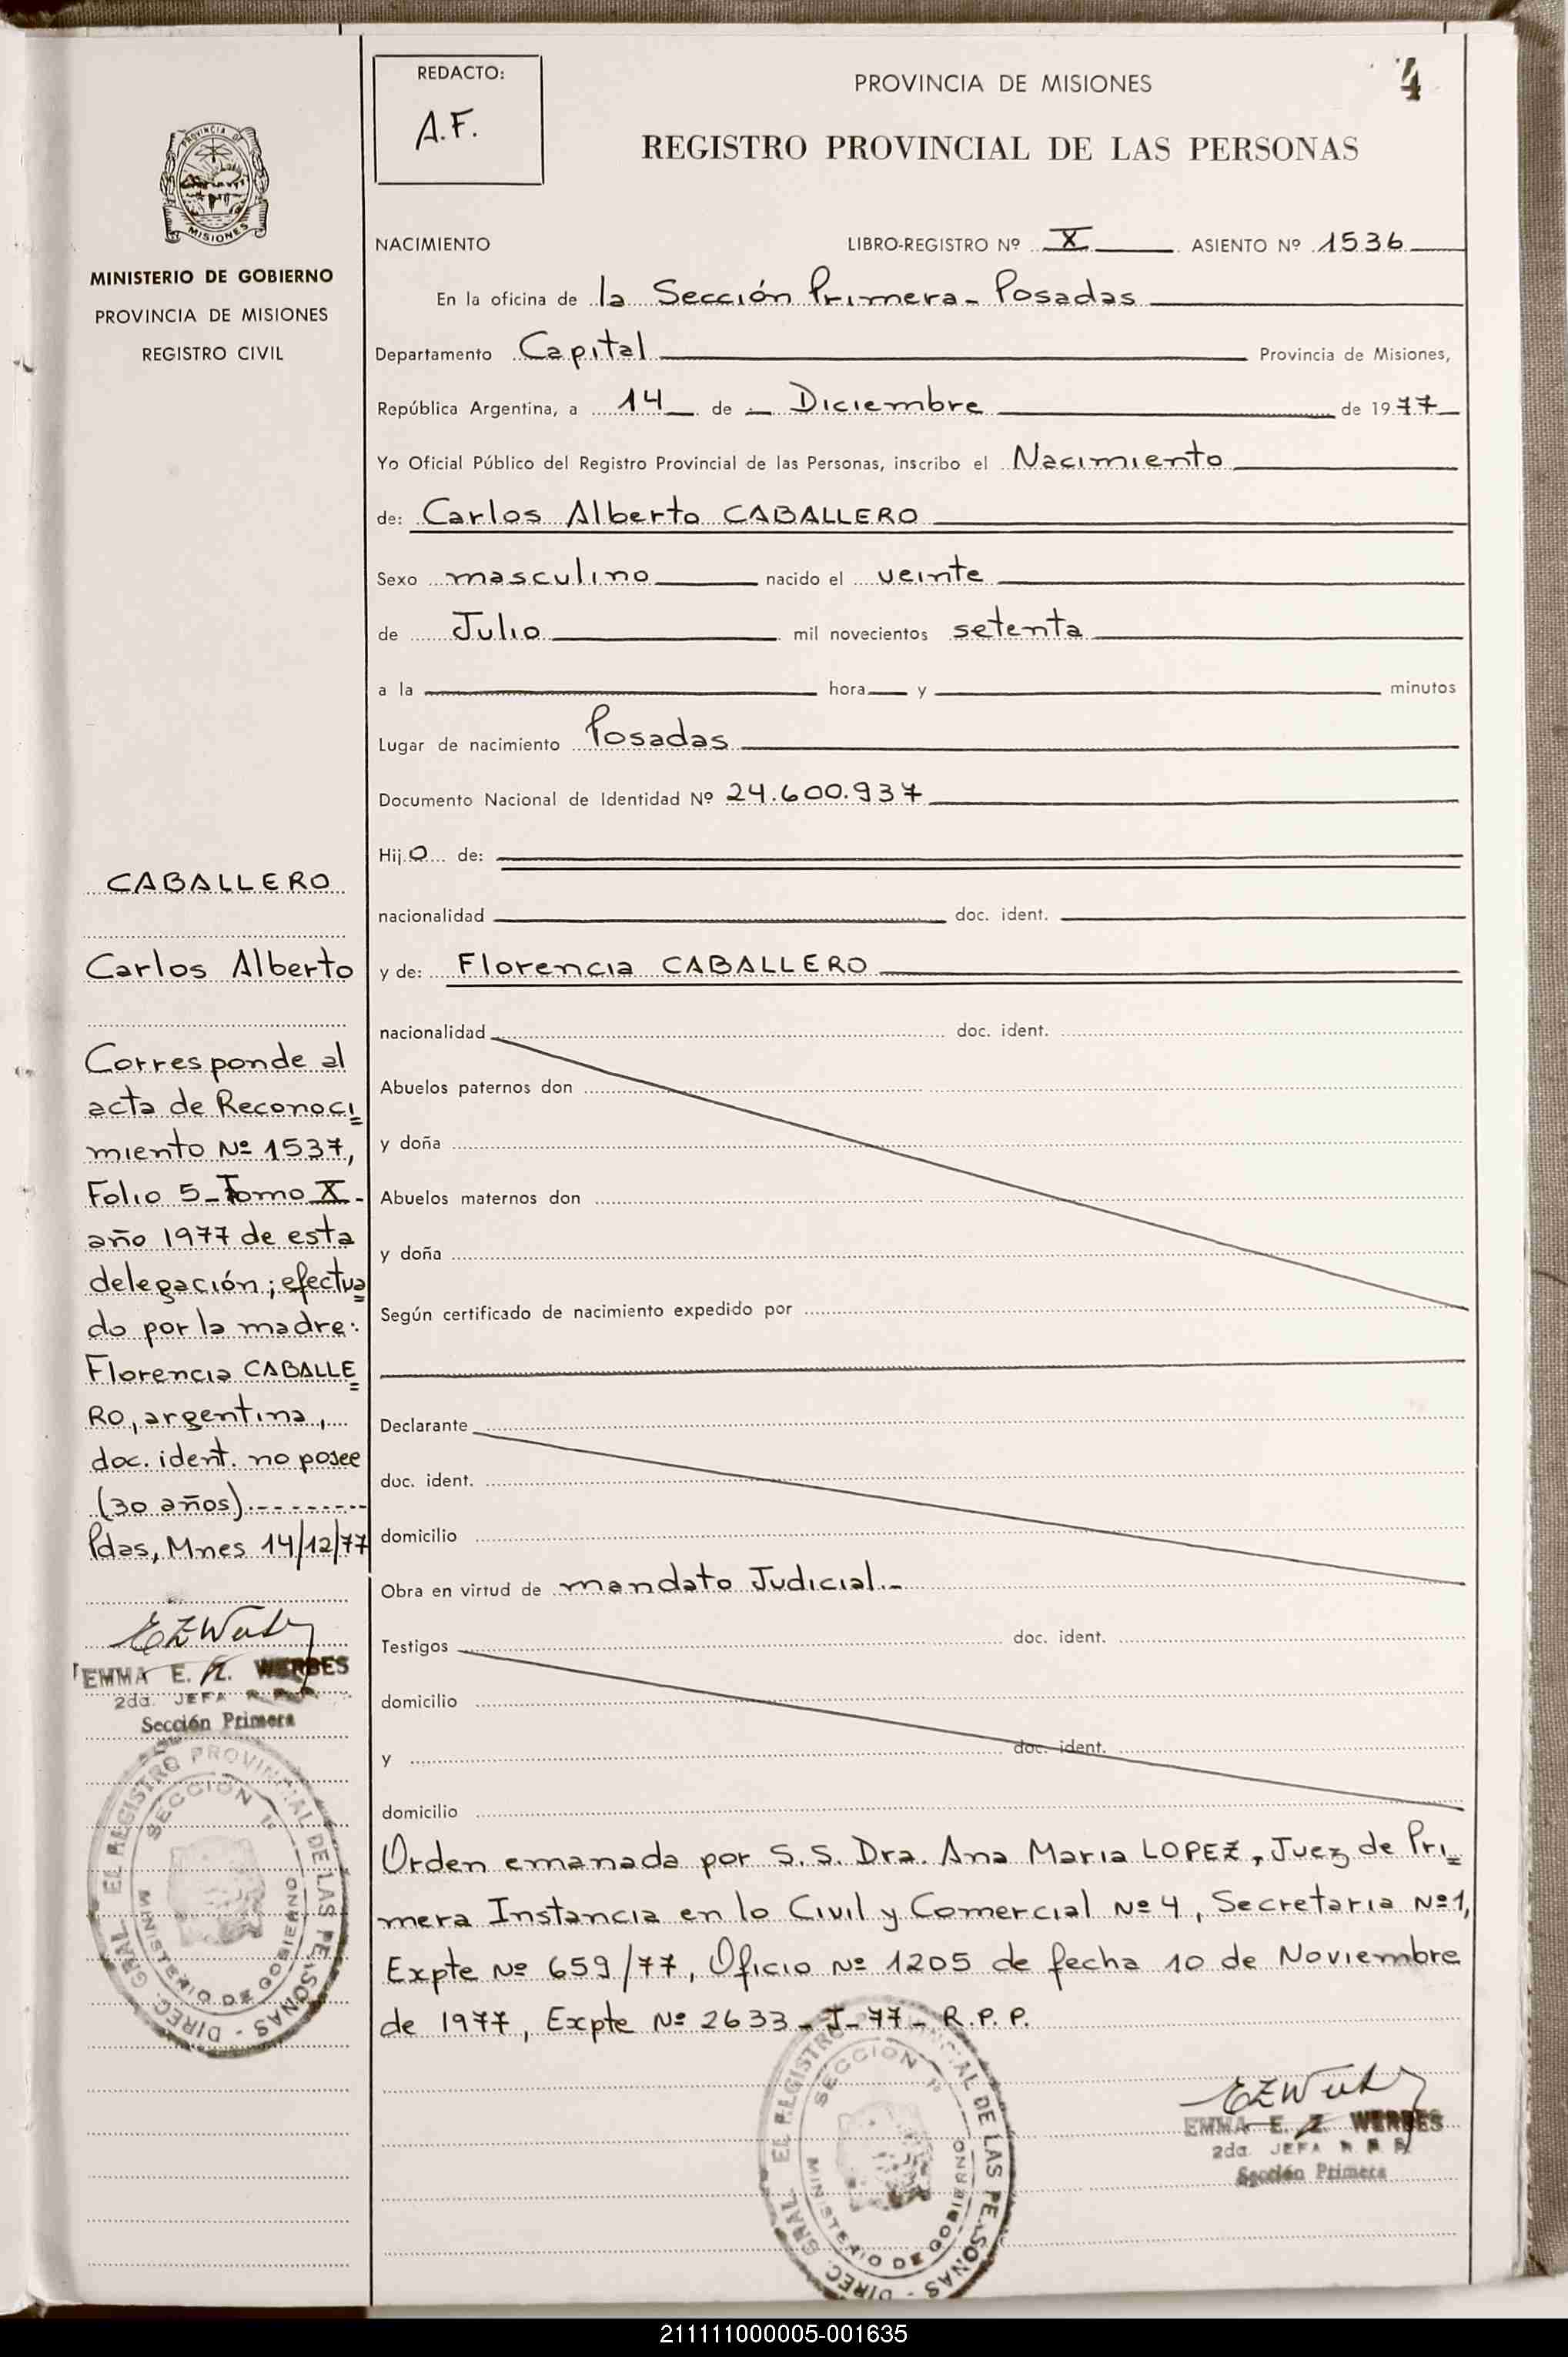 REDACTO:
A.F.
PROVINCIA DE MISIONES
4
REGISTRO PROVINCIAL DE LAS PERSONAS
PROVINCIA DE
MISIONES
MINISTERIO DE GOBIERNO
PROVINCIA DE MISIONES
REGISTRO CIVIL
NACIMIENTO LIBRO-REGISTRO Nº X ASIENTO Nº 1536
En la oficina de la Sección Primera - Posadas
Departamento Capital Provincia de Misiones,
República Argentina, a 14 de Diciembre de 1977
Yo Oficial Público del Registro Provincial de las Personas, inscribo el Nacimiento
de: Carlos Alberto CABALLERO
Sexo masculino nacido el veinte
de Julio mil novecientos setenta
a la hora y minutos
Lugar de nacimiento Posadas
Documento Nacional de Identidad Nº 24.600.937
Hijo de:
nacionalidad doc. ident.
y de: Florencia CABALLERO
nacionalidad doc. ident.
Abuelos paternos don
y doña
Abuelos maternos don
y doña
Según certificado de nacimiento expedido por
Declarante
doc. ident.
domicilio
Obra en virtud de mandato Judicial.-
Testigos doc. ident.
domicilio
y doc. ident.
domicilio
Orden emanada por S.S. Dra. Ana Maria LOPEZ, Juez de Pri=
mera Instancia en lo Civil y Comercial Nº 4, Secretaria Nº 1,
Expte Nº 659/77, Oficio Nº 1205 de fecha 10 de Noviembre
de 1977, Expte Nº 2633 - J - 77 - R.P.P.
CABALLERO
Carlos Alberto
Corresponde al
acta de Reconoci=
miento Nº 1537,
Folio 5 - Tomo X -
año 1977 de esta
delegación; efectua=
do por la madre:
Florencia CABALLE=
RO, argentina,
doc. ident. no posee
(30 años).--------
Pdas, Mnes 14/12/77
EMMA E. Z. WERBES
2da. JEFA R. P. P.
Sección Primera
DIREC. GRAL. EL REGISTRO PROVINCIAL DE LAS PERSONAS
SECCION 1ª
MINISTERIO DE GOBIERNO
DIREC. GRAL. EL REGISTRO PROVINCIAL DE LAS PERSONAS
SECCION 1ª
MINISTERIO DE GOBIERNO
EMMA E. Z. WERBES
2da. JEFA R. P. P.
Sección Primera
211111000005-001635